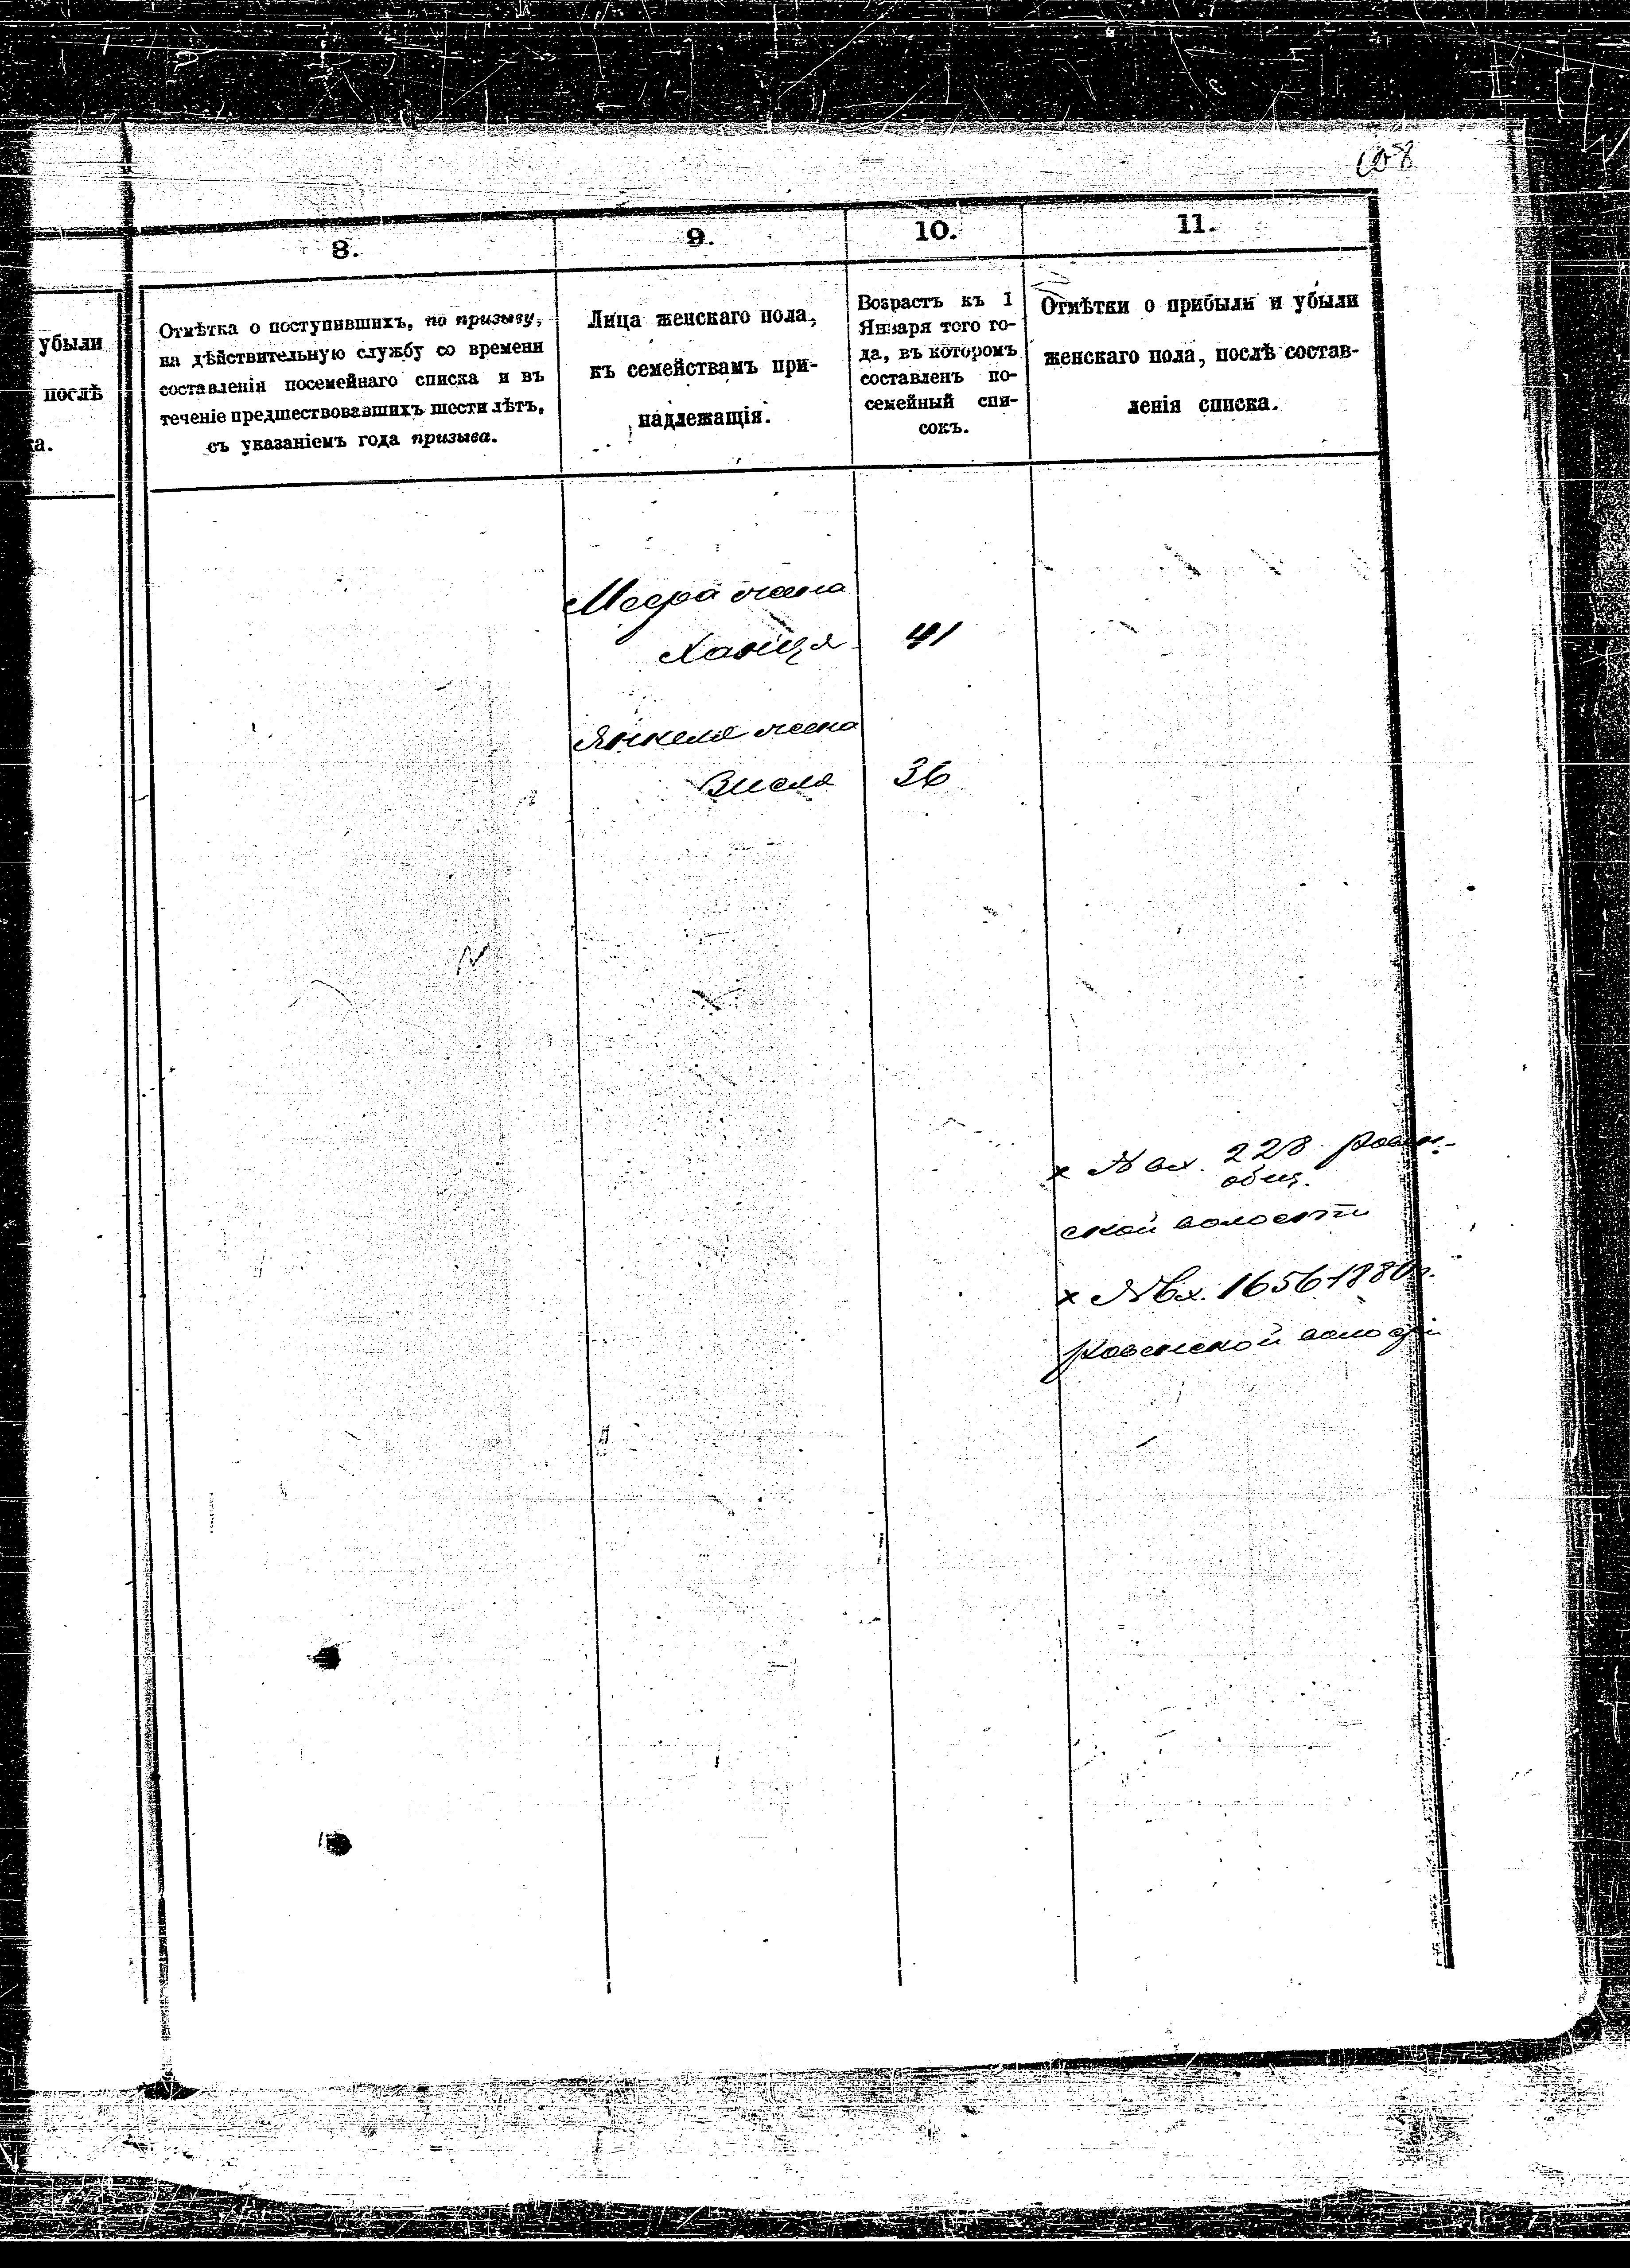 убыли
послѣ
ка.
8.
Отмѣтка о поступившихъ, по призыву,
на дѣйствительную службу со времени
составленія посемейнаго списка и въ
теченіе предшествовавшихъ шести лѣтъ,
съ указаніемъ года призыва.
9.
Лица женскаго пола,
къ семействамъ при-
надлежащія.
10.
Возрастъ къ 1
Января того го-
да, въ которомъ
составленъ по-
семейный спи-
сокъ.
11.
Отмѣтки о прибыли и убыли
женскаго пола, послѣ состав-
ленія списка.
Меера жена
Ханця 41
Янкеля жена
Зисля 36
х № вх. 228 Ровен-
общ.
ской волости
х № Вх. 1656 1880 г.
Ровенской волости